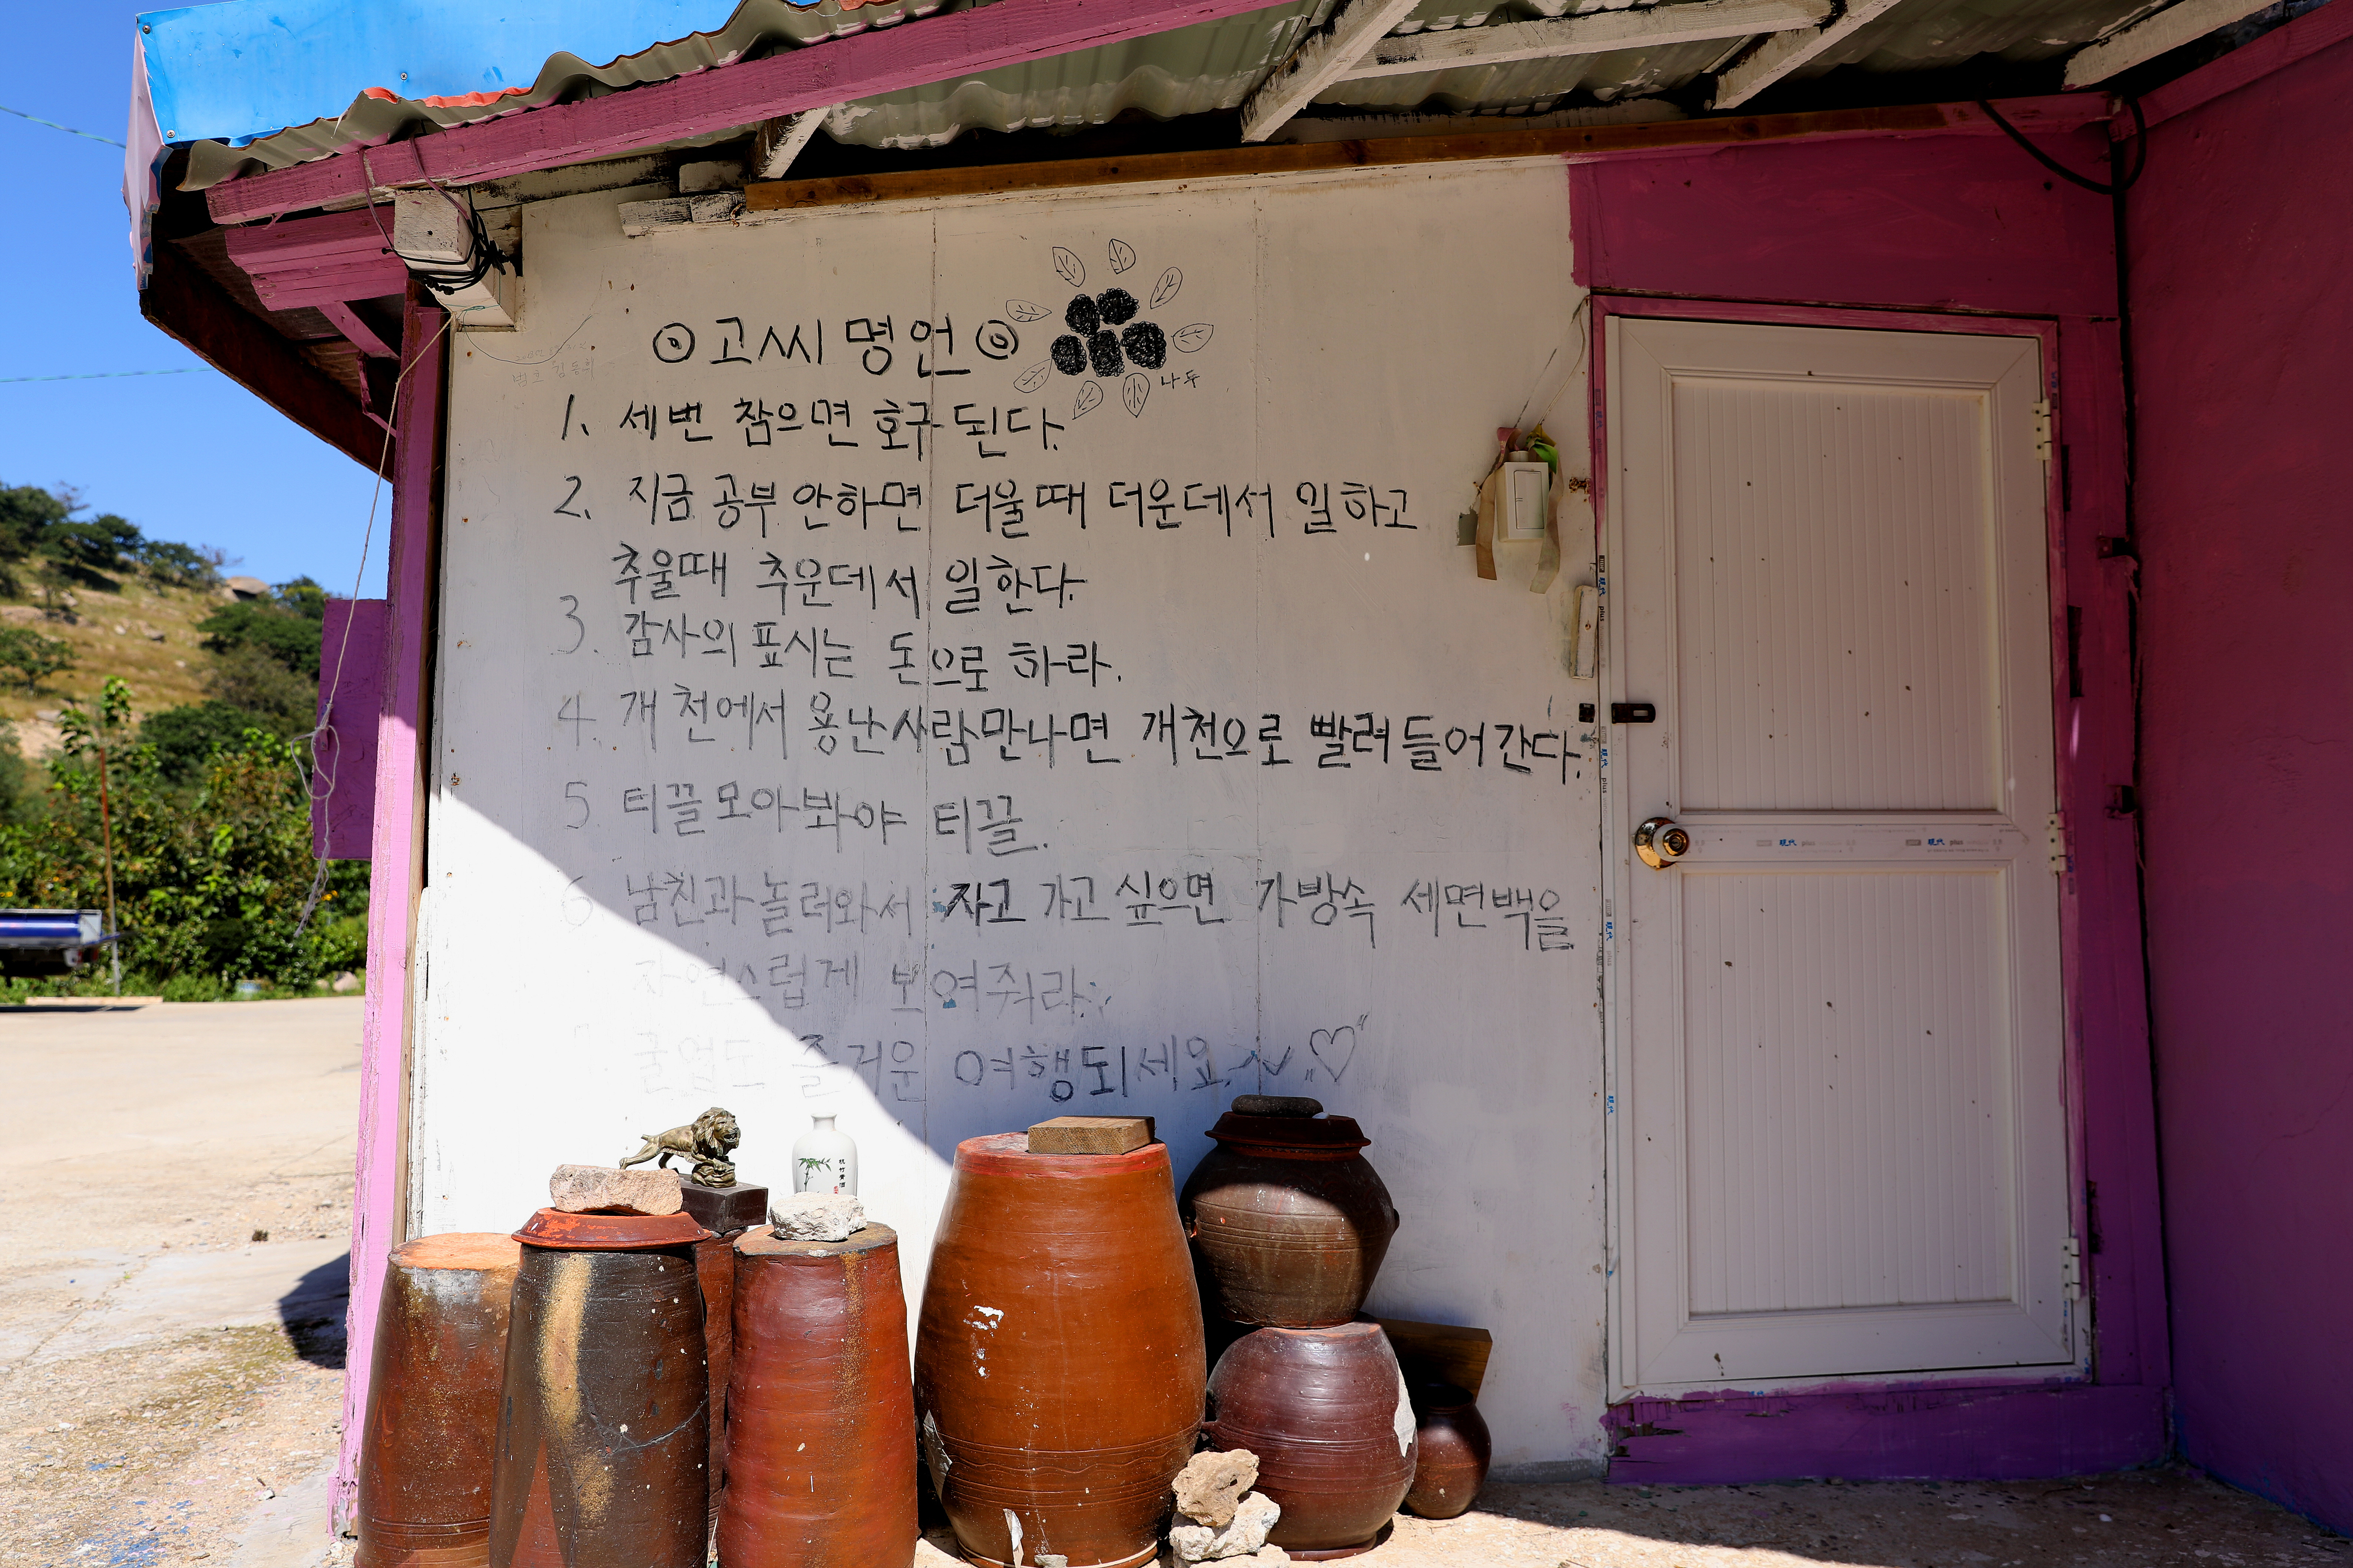 ⊙ 고씨 명언 ⊙
나두
1. 세번 참으면 호구된다.
2. 지금 공부 안하면 더울때 더운데서 일하고
추울때 추운데서 일한다.
3. 감사의 표시는 돈으로 하라.
4. 개천에서 용난사람만나면 개천으로 빨려들어간다.
5 티끌모아봐야 티끌.
6 남친과놀러와서 자고 가고 싶으면 가방속 세면백을
자연스럽게 보여줘라.
즐거운 여행되세요~ ♡
plus
plus
plus